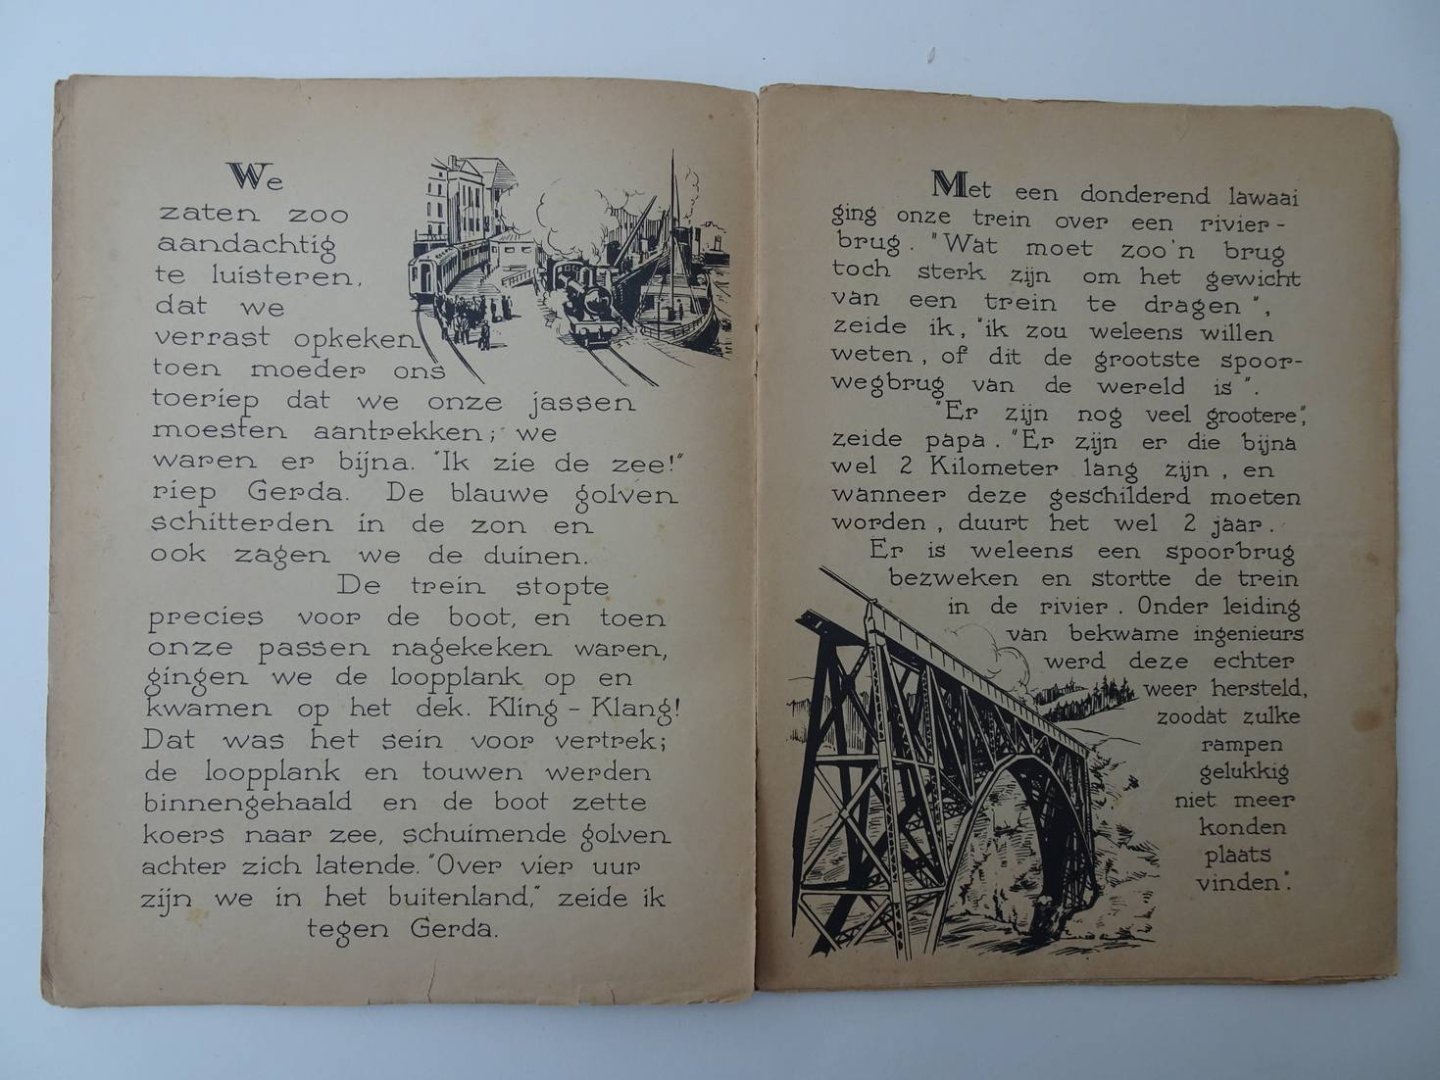 We
zaten zoo
aandachtig
te luisteren,
dat we
verrast opkeken
toen moeder ons
toeriep dat we onze jassen
moesten aantrekken; we
waren er bijna. "Ik zie de zee!"
riep Gerda. De blauwe golven
schitterden in de zon en
ook zagen we de duinen.
De trein stopte
precies voor de boot, en toen
onze passen nagekeken waren,
gingen we de loopplank op en
kwamen op het dek. Kling - Klang!
Dat was het sein voor vertrek;
de loopplank en touwen werden
binnengehaald en de boot zette
koers naar zee, schuimende golven
achter zich latende. "Over vier uur
zijn we in het buitenland," zeide ik
tegen Gerda.
Met een donderend lawaai
ging onze trein over een rivier-
brug. "Wat moet zoo'n brug
toch sterk zijn om het gewicht
van een trein te dragen",
zeide ik, "ik zou weleens willen
weten, of dit de grootste spoor-
wegbrug van de wereld is".
"Er zijn nog veel grootere",
zeide papa. "Er zijn er die bijna
wel 2 Kilometer lang zijn, en
wanneer deze geschilderd moeten
worden, duurt het wel 2 jaar.
Er is weleens een spoorbrug
bezweken en stortte de trein
in de rivier. Onder leiding
van bekwame ingenieurs
werd deze echter
weer hersteld,
zoodat zulke
rampen
gelukkig
niet meer
konden
plaats
vinden".